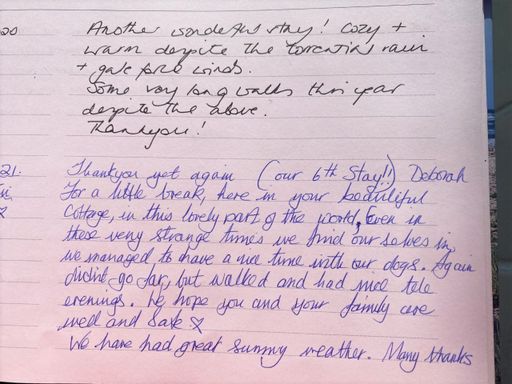 20
Another wonderful stay! Cozy +
warm despite the torrential rain
+ gale force winds.
Some very long walks this year
despite the above.
Thankyou!
21.
Thankyou yet again (our 6th stay!!) Deborah
For a little break, here in your beautiful
Cottage, in this lovely part of the world, Even in
these very strange times we find our selves in,
we managed to have a nice time with our dogs. Again
didnt go far, but walked and had nice tele
evenings. We hope you and your family are
well and safe x
We have had great sunny weather. Many thanks